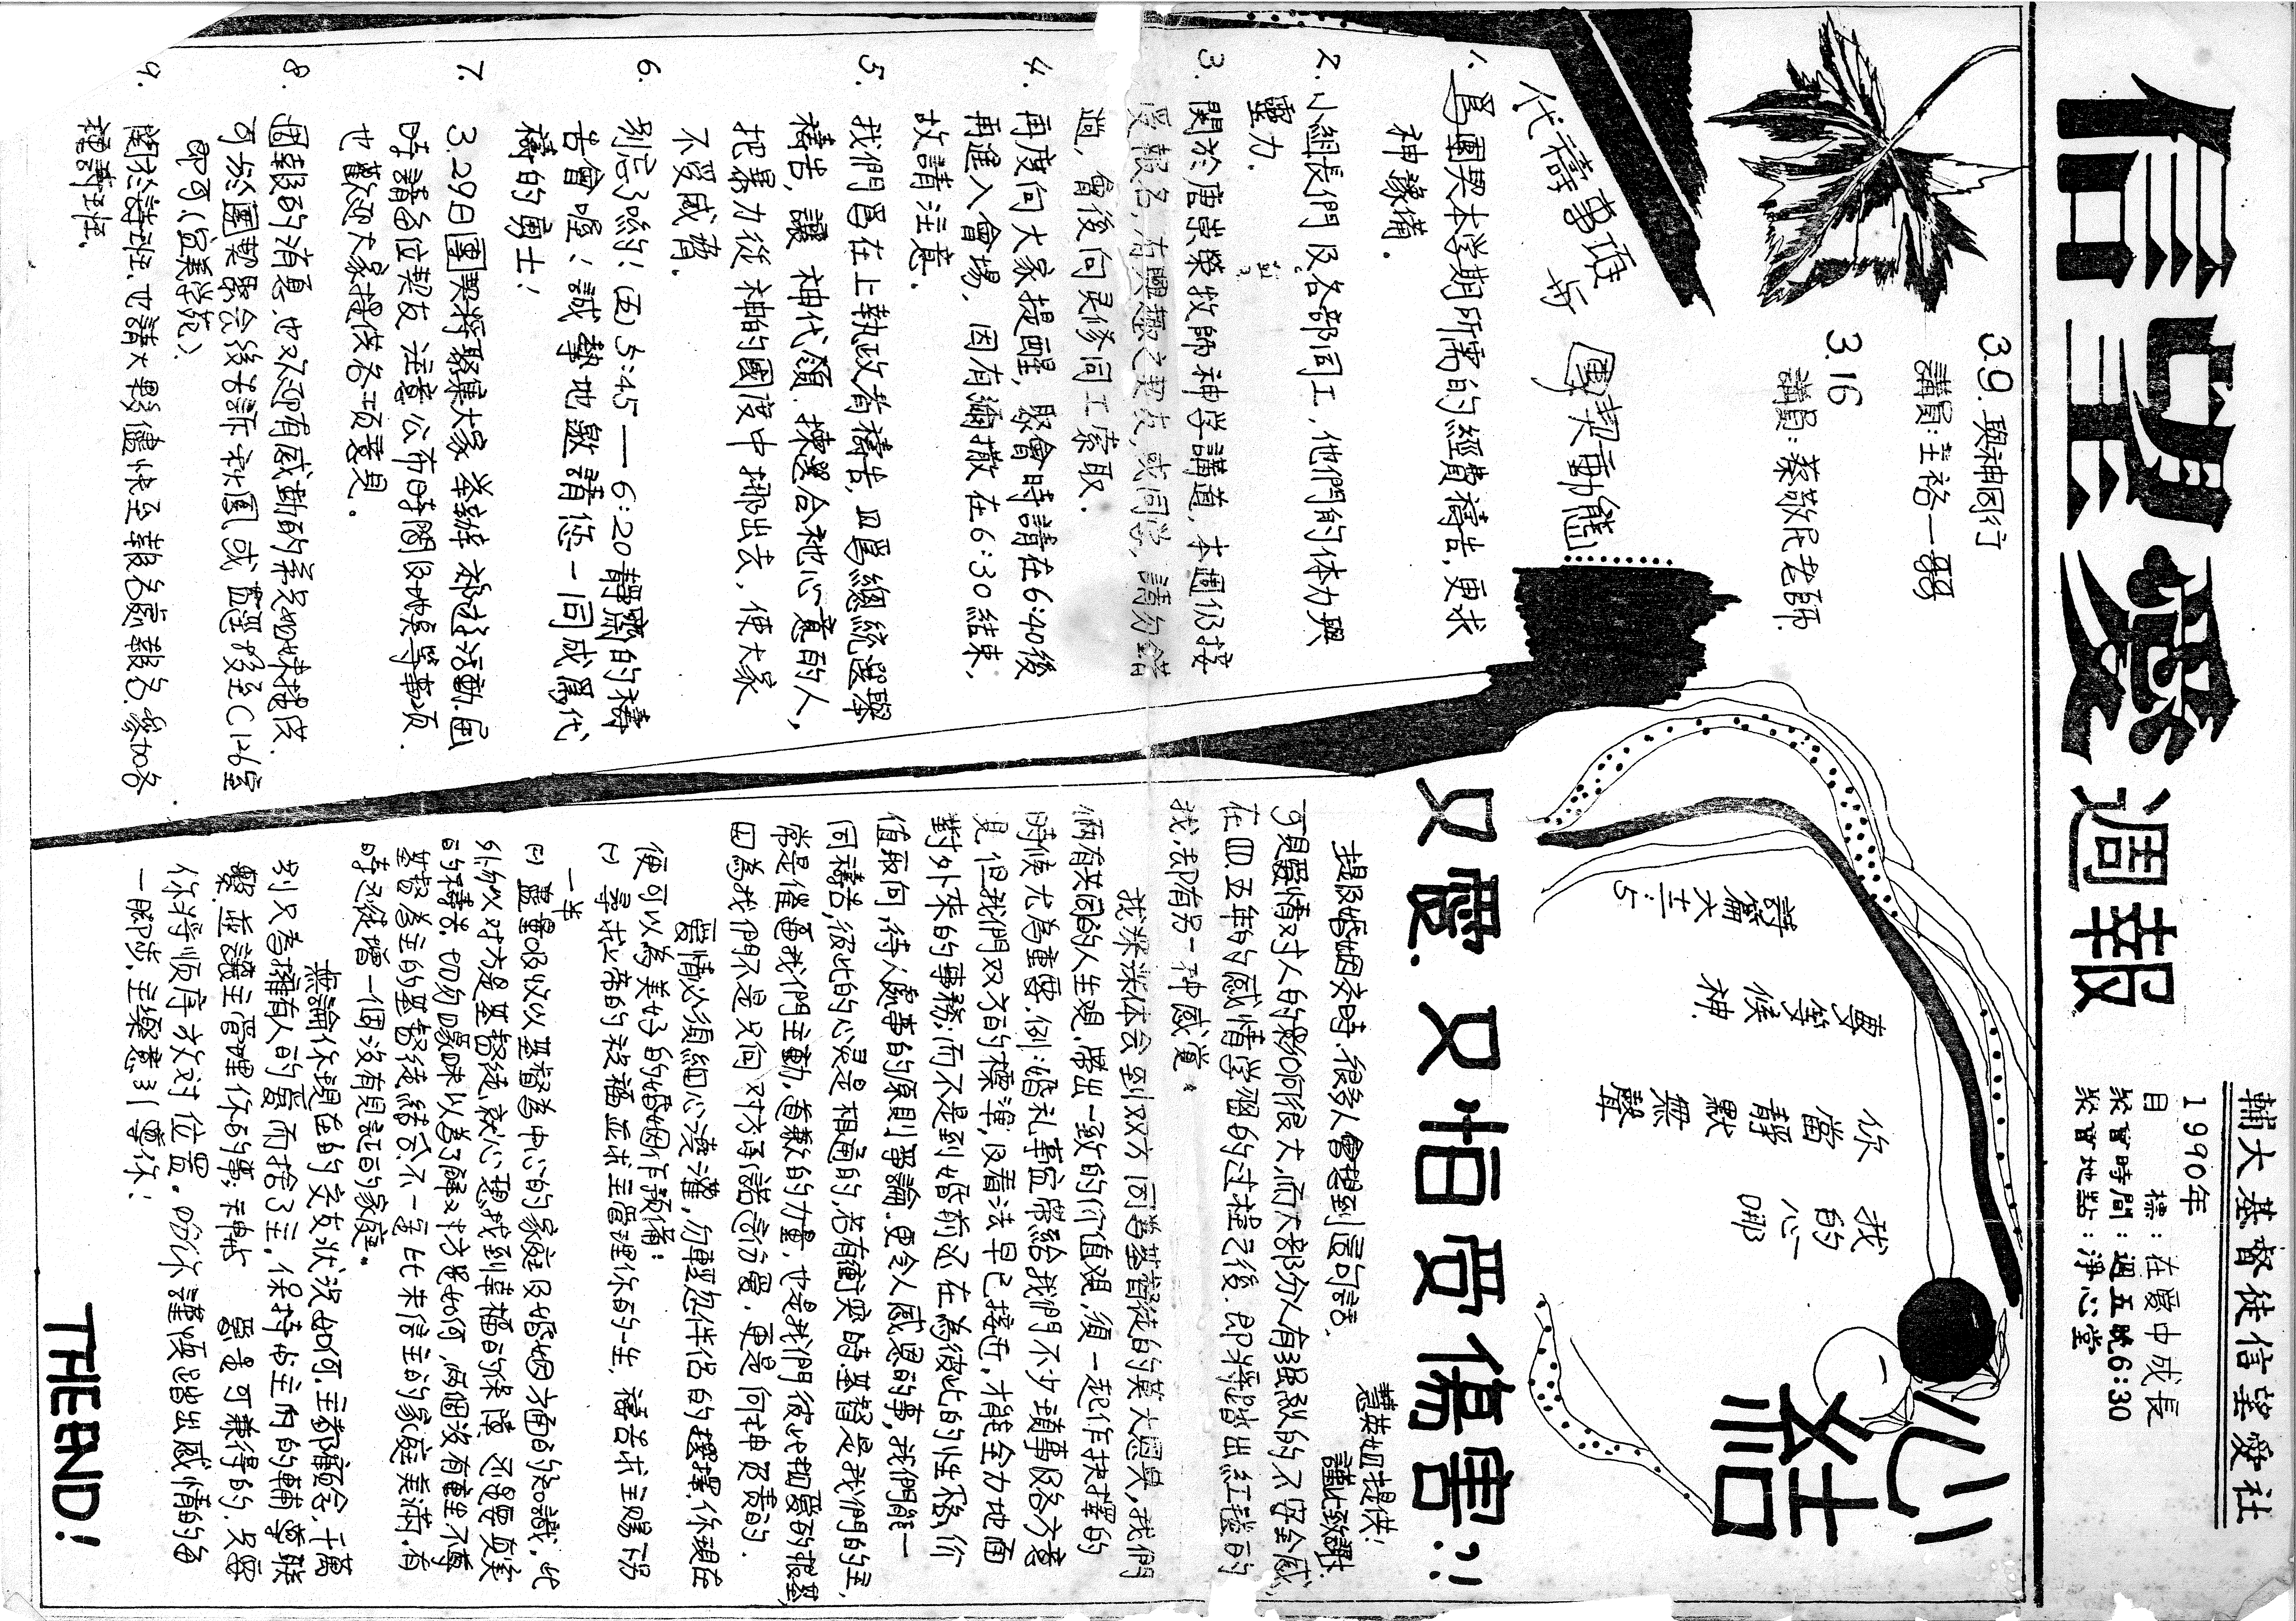 信望愛週報
輔大基督徒信望愛社
1990年
目 標：在愛中成長
聚會時間：週五晚6:30
聚會地點：淨心堂
3.9. 與神同行
講員：主裕一
3.16
講員：蔡敬民老師
代禱事項与 團契動態
1. 為團契本学期所需的經費禱告，更求
神豫備．
2. 小組長們及各部同工，他們的体力與
靈力．
3. 關於唐崇榮牧師神学講道，本週仍接
受報名，有興趣之契友，或同学，請勿錯
過， 會後向灵修同工索取．
4. 再度向大家提醒，聚會時請在6:40後
再進入會場，因有瀰撒在6:30結束，
故請注意．
5. 我們為在上執政者禱告，且為總統選舉
禱告，讓 神代領．揀選合祂心意的人，
把暴力從 神的國度中挪出去，使大家
不受威脅．
6. 別忘了喲！(五) 5:45—6:20 靜齋的禱
告會喔！誠摯地邀請您一同成為代
禱的勇士！
7. 3.29日團契將聚集大家 举辦 活動，屆
時請各位契友注意公布時間及地點等事項．
也歡迎大家提供各項意見．
8. 週報的消息，也歡迎有感動的弟兄姊妹提供．
可於團契聚会後告訴秋園，或直接投至C126室
即可（宜美学苑）．
9. 關於詩班，也請大夥儘快至報名處報名，參加各
種詩班．
心結
我的心哪
你當靜默無聲
專等候神
詩篇六二:5
又愛．又怕受傷害?!
慧英姐提供！
謹此致謝．
提及婚姻交時，很多人會想到這句話．
可見愛情对人的影响很大，而大部分人有强烈的不安全感，
在四、五年的感情学習的过程之後，即將踏出紅毯的
我，卻有另一种感道．
我深深体会到双方同為基督徒的莫大恩典，我們
倆有共同的人生观，帶出一致的价值观，須一起作抉擇的
時候尤為重要．例：婚礼事宜帶給我們不少瑣事於各方意
見，但我們双方的標準，及看法早已接近，才能全力地面
對外來的事務；而不是到婚前还在為彼此的性格，价
值取向，待人處事的原則爭論．更令人感恩的事，我們能一
同禱告，彼此的心灵是相通的，若有衝突時，基督是我們的主，
常是催逼我們主動，道歉的力量，也是我們彼此相愛的根基，
因為我們不是只向对方承諾這份愛，更是向神負責的．
愛情必須細心澆灌，勿輕忽伴侶的選擇，你現在
便可以為美好的婚姻作預備：
(一) 尋求上帝的祝福並求主管理你的一生，禱告求主賜下另
一半
(二) 盡量吸收以基督為中心的家庭及婚姻方面的知識，此
外勿以对方是基督徒，就心想找到幸福的保障，还是要真实
的禱告，切勿曖昧以為了解对方是如何，兩個沒有重生，不尊
基督為主的基督徒結合，不一定比未信主的家庭美滿，有
時是徒增一個沒有見証的家庭．
無論你現在的交友狀況如何，主都顧念，千萬
別只為擁有人的愛而捨了主，保持与主內的輔導聯
繫，並讓主管理你的事；与神 愛是可兼得的，只要
你將順序放对位置．盼你謹慎踏出感情的每
一腳步，主樂意引導你！
THE END!